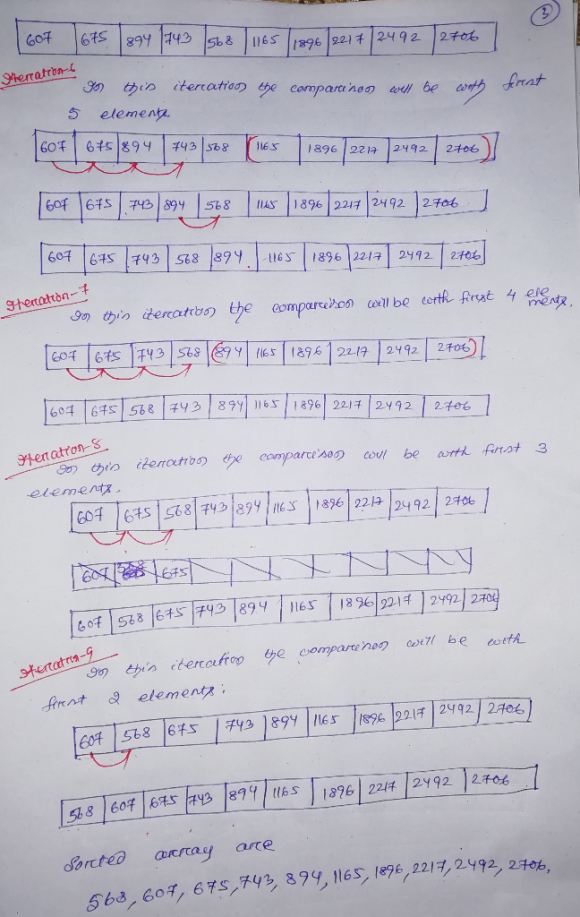 3
607 675 894 743 568 1165 1896 2217 2492 2706
Iteration-6
In this iteration the comparison will be with first
5 elements.
607 675 894 743 568 (1165 1896 2217 2492 2706)
607 675 743 894 568 1165 1896 2217 2492 2706
607 675 743 568 894 1165 1896 2217 2492 2706
Iteration-7
In this iteration the comparison will be with first 4 elements.
607 675 743 568 (894 1165 1896 2217 2492 2706)
607 675 568 743 894 1165 1896 2217 2492 2706
Iteration-8
In this iteration the comparison will be with first 3
elements.
607 675 568 743 894 1165 1896 2217 2492 2706
607 568 675
607 568 675 743 894 1165 1896 2217 2492 2706
Iteration-9
In this iteration the comparison will be with
first 2 elements:
607 568 675 743 894 1165 1896 2217 2492 2706
568 607 675 743 894 1165 1896 2217 2492 2706
Sorted array are
568, 607, 675, 743, 894, 1165, 1896, 2217, 2492, 2706.